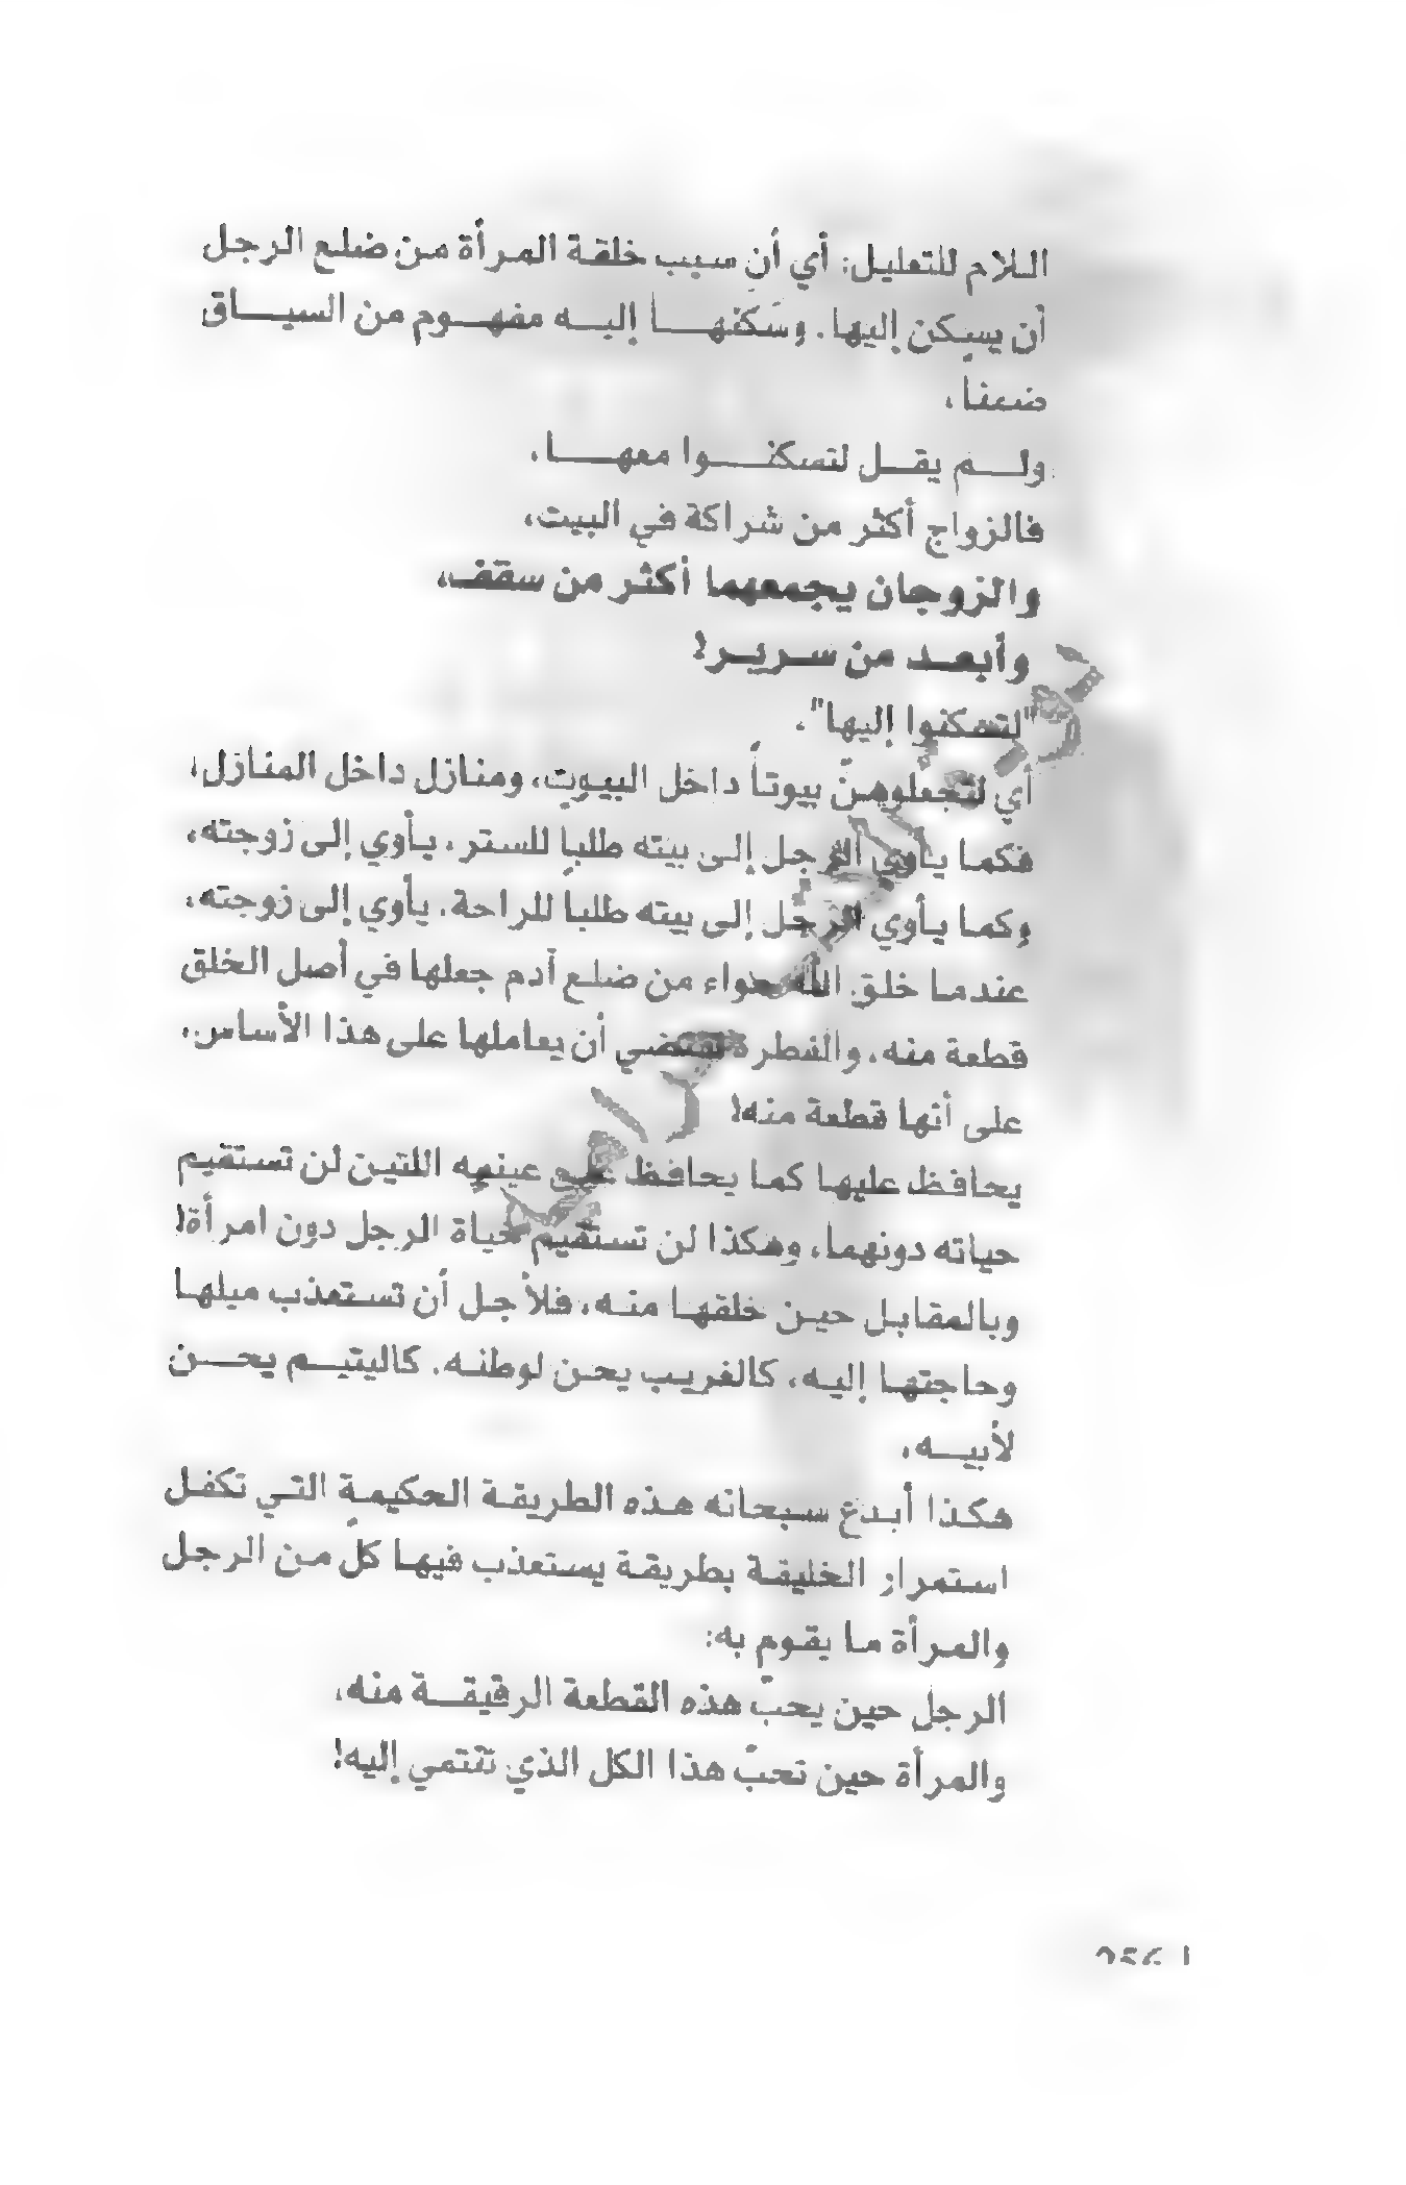 اللام للتعليل: أي أن سبب خلقة المرأة من ضلع الرجل
أن يسكن إليها. وسَكَنها إليه مفهوم من السياق
ضمناً.
ولم يقل لتسكنوا معها.
فالزواج أكثر من شراكة في البيت،
والزوجان يجمعهما أكثر من سقف،
وأبعد من سرير!
"لتسكنوا إليها".
أي لتجعلوهنّ بيوتاً داخل البيوت، ومنازل داخل المنازل،
فكما يأوي الرجل إلى بيته طلباً للستر، يأوي إلى زوجته،
وكما يأوي الرجل إلى بيته طلباً للراحة، يأوي إلى زوجته،
عندما خلق الله حواء من ضلع آدم جعلها في أصل الخلق
قطعة منه، والفطرة تقتضي أن يعاملها على هذا الأساس،
على أنها قطعة منه!
يحافظ عليها كما يحافظ على عينيه اللتين لن تستقيم
حياته دونهما، وهكذا لن تستقيم حياة الرجل دون امرأة!
وبالمقابل حين خلقها منه، فلأجل أن تستعذب ميلها
وحاجتها إليه، كالغريب يحن لوطنه، كاليتيم يحن
لأبيه،
هكذا أبدع سبحانه هذه الطريقة الحكيمة التي تكفل
استمرار الخليقة بطريقة يستعذب فيها كلّ من الرجل
والمرأة ما يقوم به:
الرجل حين يحبّ هذه القطعة الرقيقة منه،
والمرأة حين تحبّ هذا الكل الذي تنتمي إليه!